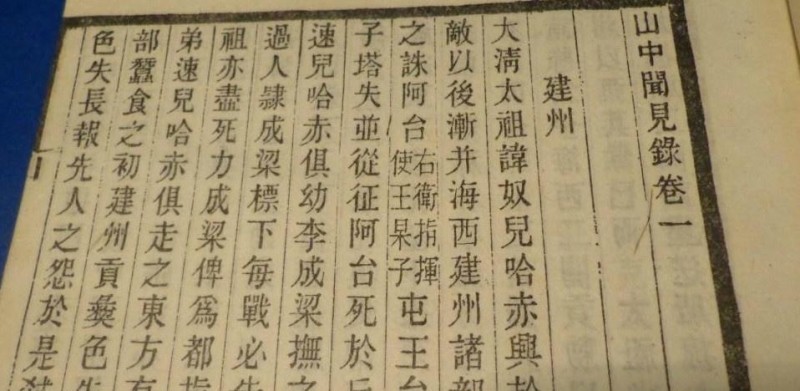 山中聞見錄卷一
建州
大清太祖諱奴兒哈赤興於
敵以後漸并海西建州諸部
之誅阿台右衛指揮使王杲子屯王台
子塔失並從征阿台死於
速兒哈赤俱幼李成梁撫之
過人隸成梁標下每戰必
祖亦盡死力成梁俾爲都指
弟速兒哈赤俱走之東方有
部蠶食之初建州貢彝色失
色失長報先人之怨於是